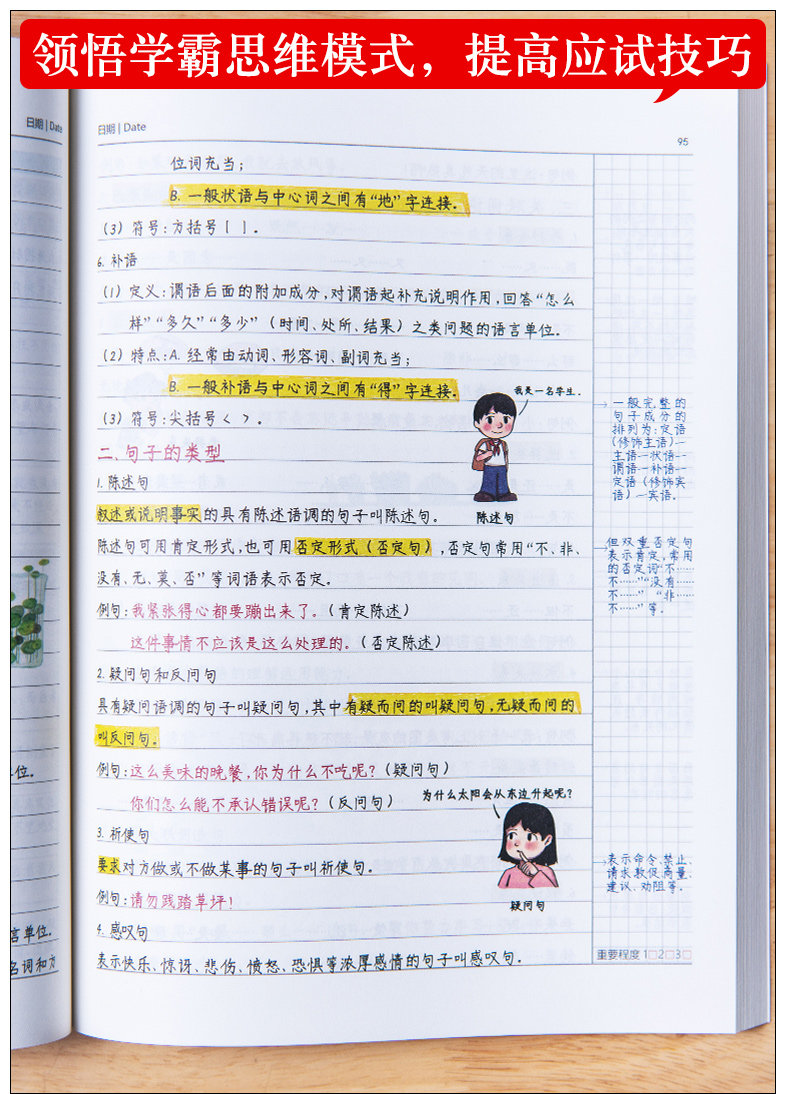 领悟学霸思维模式，提高应试技巧
日期 | Date
日期 | Date
95
位词充当；
B. 一般状语与中心词之间有“地”字连接．
（3）符号：方括号［ ］．
6. 补语
（1）定义：谓语后面的附加成分，对谓语起补充说明作用，回答“怎么
样”“多久”“多少”（时间、处所、结果）之类问题的语言单位．
（2）特点：A. 经常由动词、形容词、副词充当；
B. 一般补语与中心词之间有“得”字连接．
（3）符号：尖括号＜ ＞．
我是一名学生．
陈述句
二、句子的类型
1. 陈述句
叙述或说明事实的具有陈述语调的句子叫陈述句．
陈述句可用肯定形式，也可用否定形式（否定句），否定句常用“不、非、
没有、无、莫、否”等词语表示否定．
例句：我紧张得心都要蹦出来了．（肯定陈述）
这件事情不应该是这么处理的．（否定陈述）
2. 疑问句和反问句
具有疑问语调的句子叫疑问句，其中有疑而问的叫疑问句，无疑而问的
叫反问句．
例句：这么美味的晚餐，你为什么不吃呢？（疑问句）
你们怎么能不承认错误呢？（反问句）
为什么太阳会从东边升起呢？
疑问句
3. 祈使句
要求对方做或不做某事的句子叫祈使句．
例句：请勿践踏草坪！
4. 感叹句
表示快乐、惊讶、悲伤、愤怒、恐惧等浓厚感情的句子叫感叹句．
一般完整的
句子成分的
排列为：定语
（修饰主语）—
主语—状语—
谓语—补语—
定语（修饰宾
语）—宾语．
但双重否定句
表示肯定，常用
的否定词“不……
不……”“没有……
不……”“非……
不……”等．
表示命令、禁止、
请求、敦促、商量、
建议、劝阻等．
重要程度 1□2□3□
单位．
言单位．
名词和方